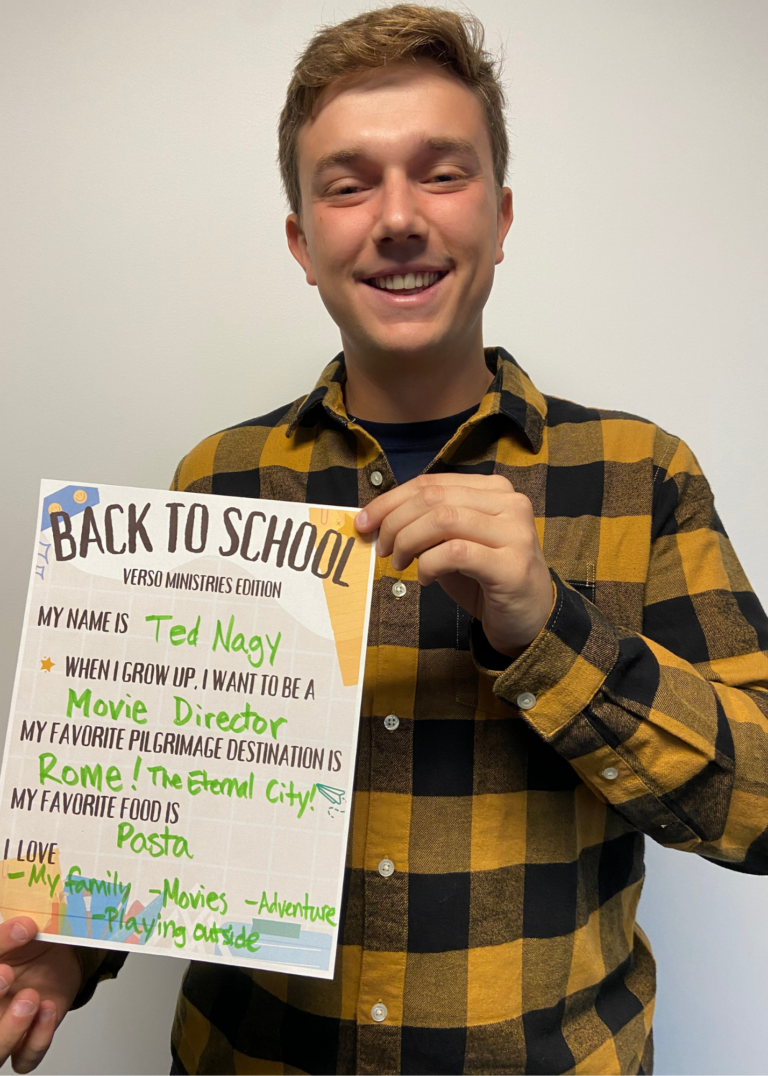 BACK TO SCHOOL
VERSO MINISTRIES EDITION
MY NAME IS Ted Nagy
WHEN I GROW UP, I WANT TO BE A
Movie Director
MY FAVORITE PILGRIMAGE DESTINATION IS
Rome! The Eternal City!
MY FAVORITE FOOD IS
Pasta
I LOVE
-My family -Movies -Adventure
-Playing outside